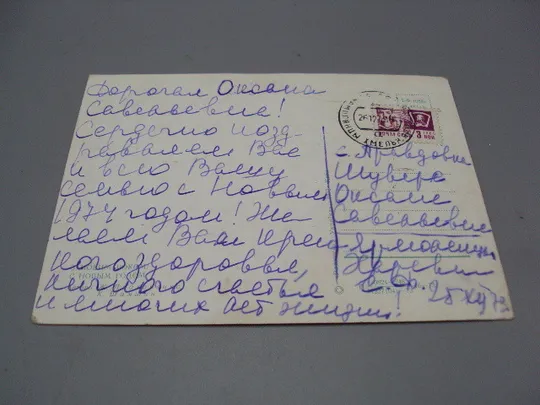 Дорогая Оксана
Савельевна!
Сердечно позд-
равляем Вас
и всю Вашу
семью с Новым
1974 годом! Же-
лаем Вам креп-
кого здоровья,
личного счастья
и многих лет жизни!
с. Правдовка
Шувере
Оксане
Савельевне
Ярмолинцы
25 XII 73
С НОВЫМ ГОДОМ